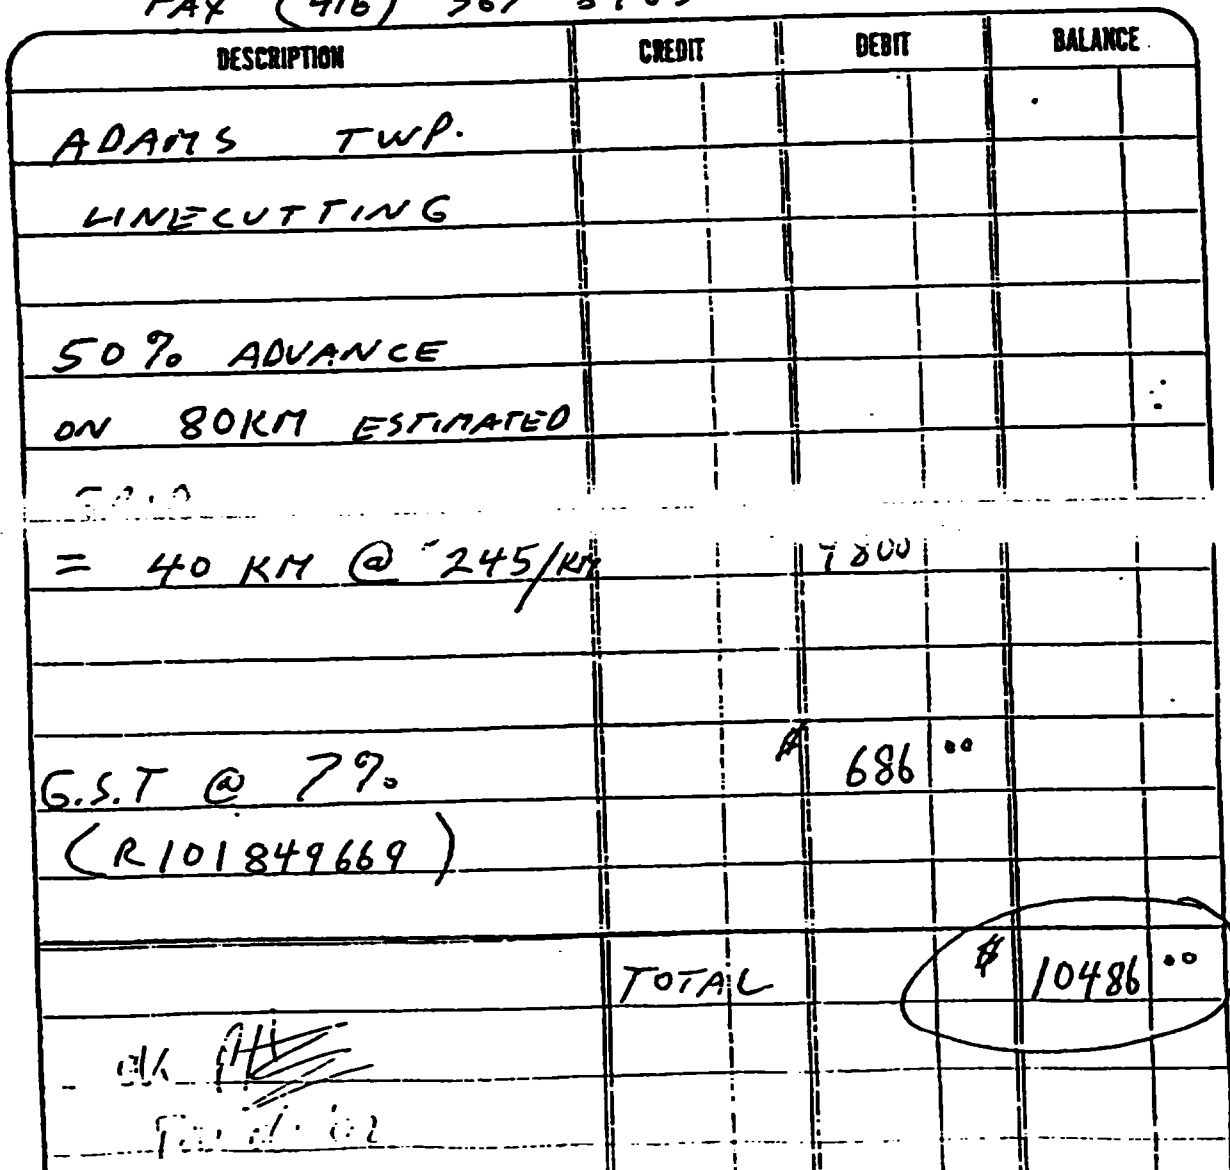 FAX (416)
DESCRIPTION CREDIT DEBIT BALANCE
ADAMS TWP.
LINECUTTING
50% ADVANCE
ON 80KM ESTIMATED
= 40 KM @ 245/KM 9800
G.S.T @ 7% $ 686 00
(R101849669)
TOTAL $ 10486 00
OK